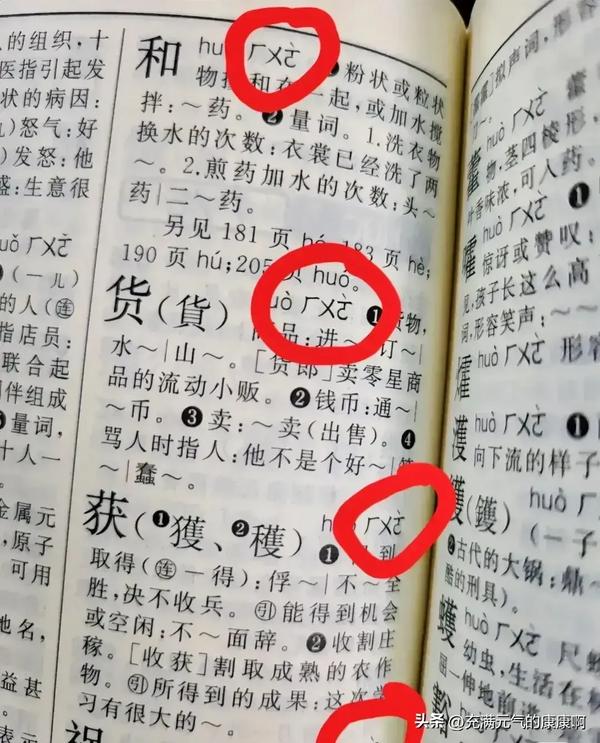 的组织,十
医指引起发
状的病因:
)怒气:好
)发怒:他
盛:生意很
huǒ ㄏㄨㄛˇ
❶(一儿)
的人(连
指店员:
联合起
同伴组成
❷量词,
十人一
金属元
原子
可用
地名,
益甚
和 huò ㄏㄨㄛˋ ❶粉状或粒状
物掺和在一起,或加水搅
拌:~药。❷量词。1.洗衣物
换水的次数:衣裳已经洗了两
~。2.煎药加水的次数:头~
药|二~药。
另见 181 页 hé;183 页 hè;
190 页 hú;205 页 huó。
货(貨) huò ㄏㄨㄛˋ ❶货物,
商品:进~|订~|
水~|山~。[货郎]卖零星商
品的流动小贩。❷钱币:通~|
~币。❸卖:~卖(出售)。❹
骂人时指人:他不是个好~|
~|蠢~。
获(❶獲、❷穫) huò ㄏㄨㄛˋ
❶得到
取得(连一得):俘~|不~全
胜,决不收兵。引能得到机会
或空闲:不~面辞。❷收割庄
稼。[收获]割取成熟的农作
物。引所得到的成果:这次学
习有很大的~。
拟声词,形容
藿 huò ㄏㄨㄛˋ
物,茎四棱形,
叶香味浓,可入药。
嚯 huò ㄏㄨㄛˋ ❶
惊讶或赞叹:
见,孩子长这么高
词,形容笑声:~
huò ㄏㄨㄛˋ 形容
huò ㄏㄨㄛˋ ❶
向下流的样子
镬(鑊) huò ㄏㄨㄛˋ
(一子
❷古代的大锅:鼎~
酷的刑具)。
蠖 huò ㄏㄨㄛˋ 尺蠖
幼虫,生活在
屈一伸地前进
头条 @充满元气的康康啊